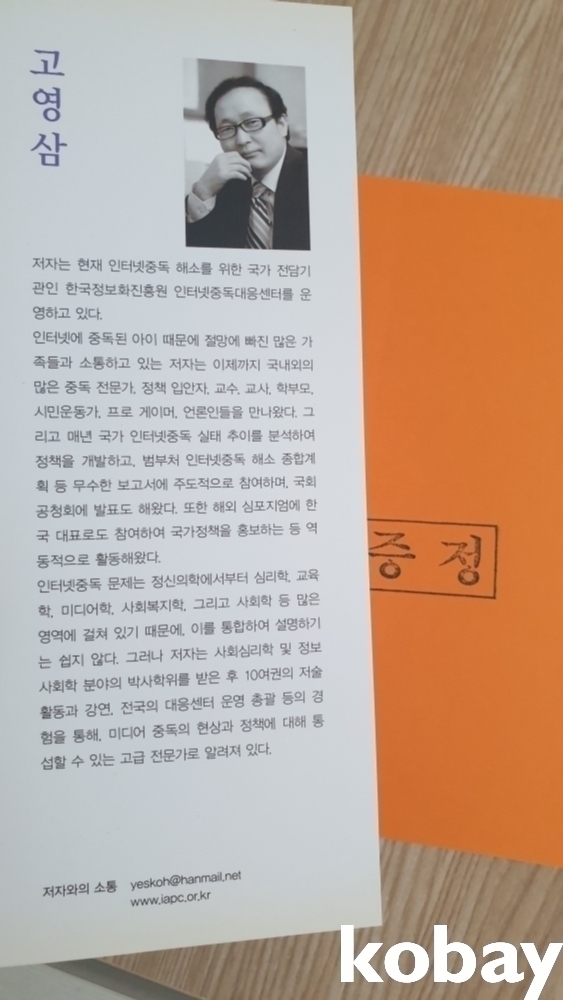 고영삼
저자는 현재 인터넷중독 해소를 위한 국가 전담기
관인 한국정보화진흥원 인터넷중독대응센터를 운
영하고 있다.
인터넷에 중독된 아이 때문에 절망에 빠진 많은 가
족들과 소통하고 있는 저자는 이제까지 국내외의
많은 중독 전문가, 정책 입안자, 교수, 교사, 학부모,
시민운동가, 프로 게이머, 언론인들을 만나왔다. 그
리고 매년 국가 인터넷중독 실태 추이를 분석하여
정책을 개발하고, 범부처 인터넷중독 해소 종합계
획 등 무수한 보고서에 주도적으로 참여하며, 국회
공청회에 발표도 해왔다. 또한 해외 심포지엄에 한
국 대표로도 참여하여 국가정책을 홍보하는 등 역
동적으로 활동해왔다.
인터넷중독 문제는 정신의학에서부터 심리학, 교육
학, 미디어학, 사회복지학, 그리고 사회학 등 많은
영역에 걸쳐 있기 때문에, 이를 통합하여 설명하기
는 쉽지 않다. 그러나 저자는 사회심리학 및 정보
사회학 분야의 박사학위를 받은 후 10여권의 저술
활동과 강연, 전국의 대응센터 운영 총괄 등의 경
험을 통해, 미디어 중독의 현상과 정책에 대해 통
섭할 수 있는 고급 전문가로 알려져 있다.
저자와의 소통 yeskoh@hanmail.net
www.iapc.or.kr
증정
kobay